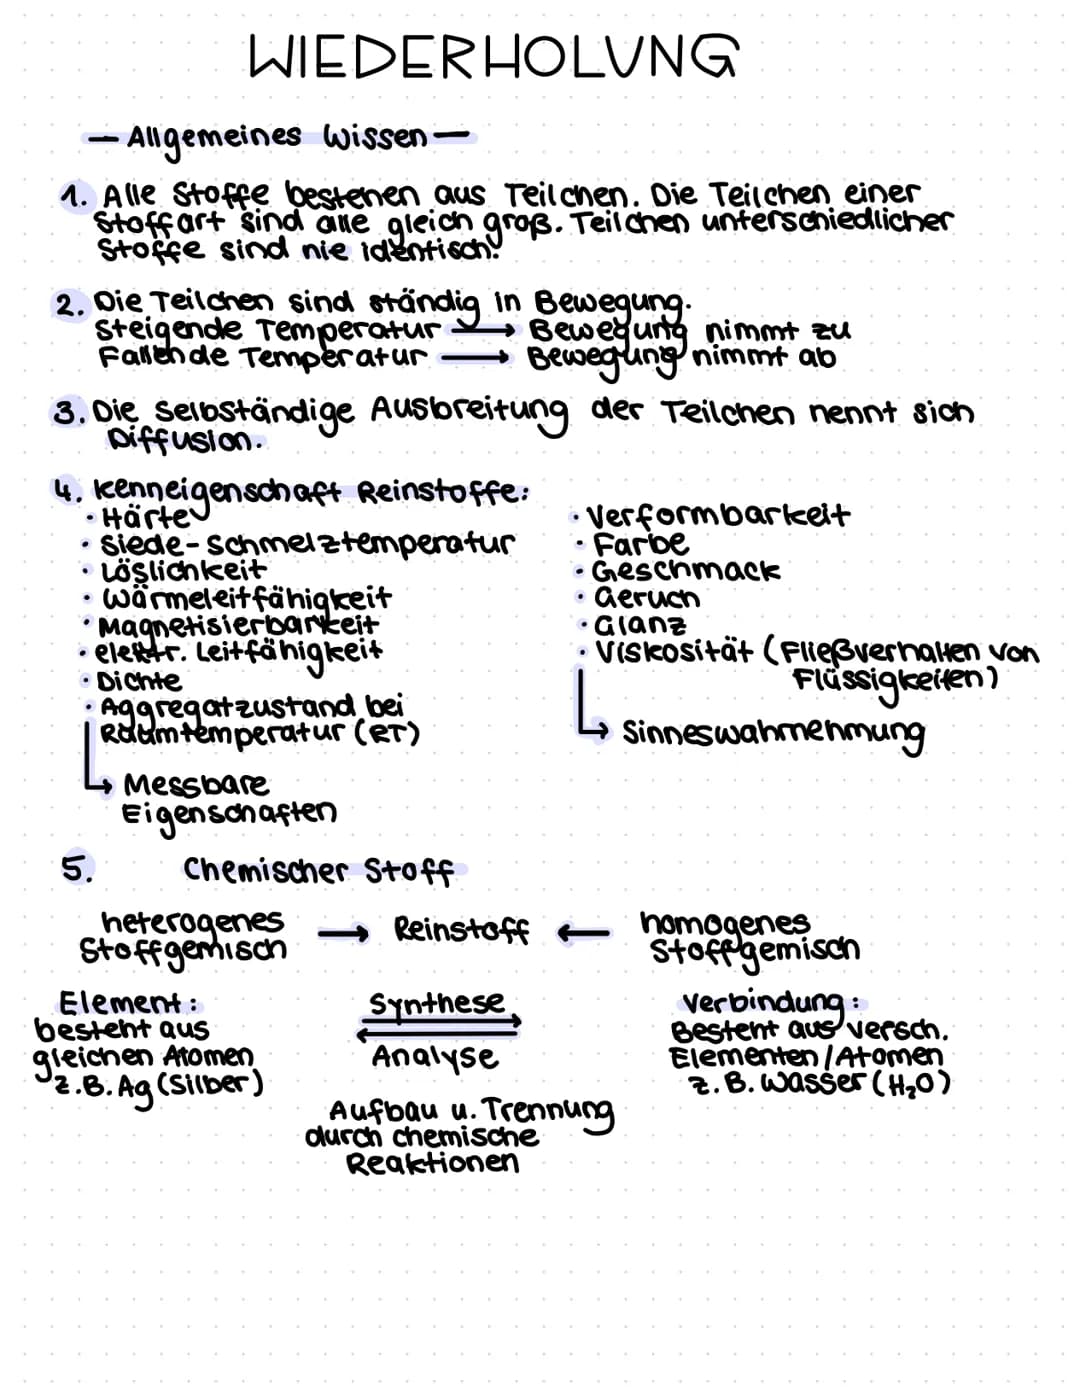 WIEDERHOLUNG
— Allgemeines Wissen —
1. Alle Stoffe bestehen aus Teilchen. Die Teilchen einer
Stoffart sind alle gleich groß. Teilchen unterschiedlicher
Stoffe sind nie identisch.
2. Die Teilchen sind ständig in Bewegung.
Steigende Temperatur → Bewegung nimmt zu
Fallende Temperatur → Bewegung nimmt ab
3. Die selbständige Ausbreitung der Teilchen nennt sich
Diffusion.
4. Kenneigenschaft Reinstoffe:
· Härte
· Siede-Schmelztemperatur
· Löslichkeit
· Wärmeleitfähigkeit
· Magnetisierbarkeit
· elektr. Leitfähigkeit
· Dichte
· Aggregatzustand bei
Raumtemperatur (RT)
↳ Messbare
Eigenschaften
· Verformbarkeit
· Farbe
· Geschmack
· Geruch
· Glanz
· Viskosität (Fließverhalten von
Flüssigkeiten)
↳ Sinneswahrnehmung
5. Chemischer Stoff
heterogenes
Stoffgemisch
→ Reinstoff ←
homogenes
Stoffgemisch
Element:
besteht aus
gleichen Atomen
z.B. Ag (Silber)
Synthese
Analyse
Aufbau u. Trennung
durch chemische
Reaktionen
Verbindung:
Besteht aus versch.
Elementen/Atomen
z.B. Wasser (H₂O)